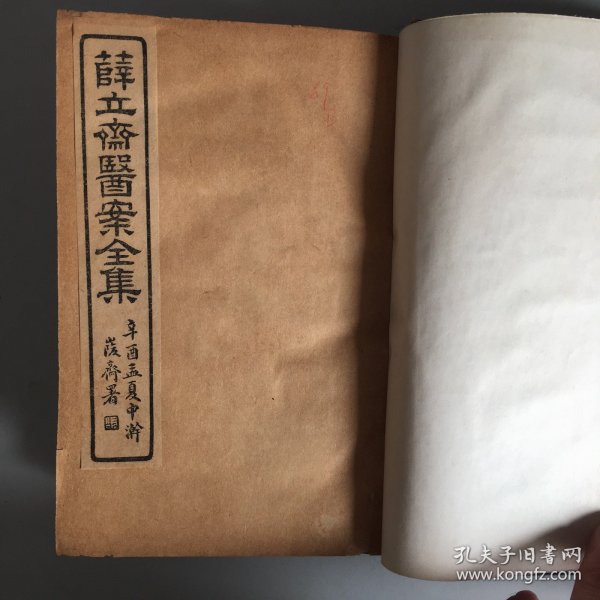 薛立齋醫案全集
辛酉孟夏申澣
署
孔夫子旧书网
www.kongfz.com